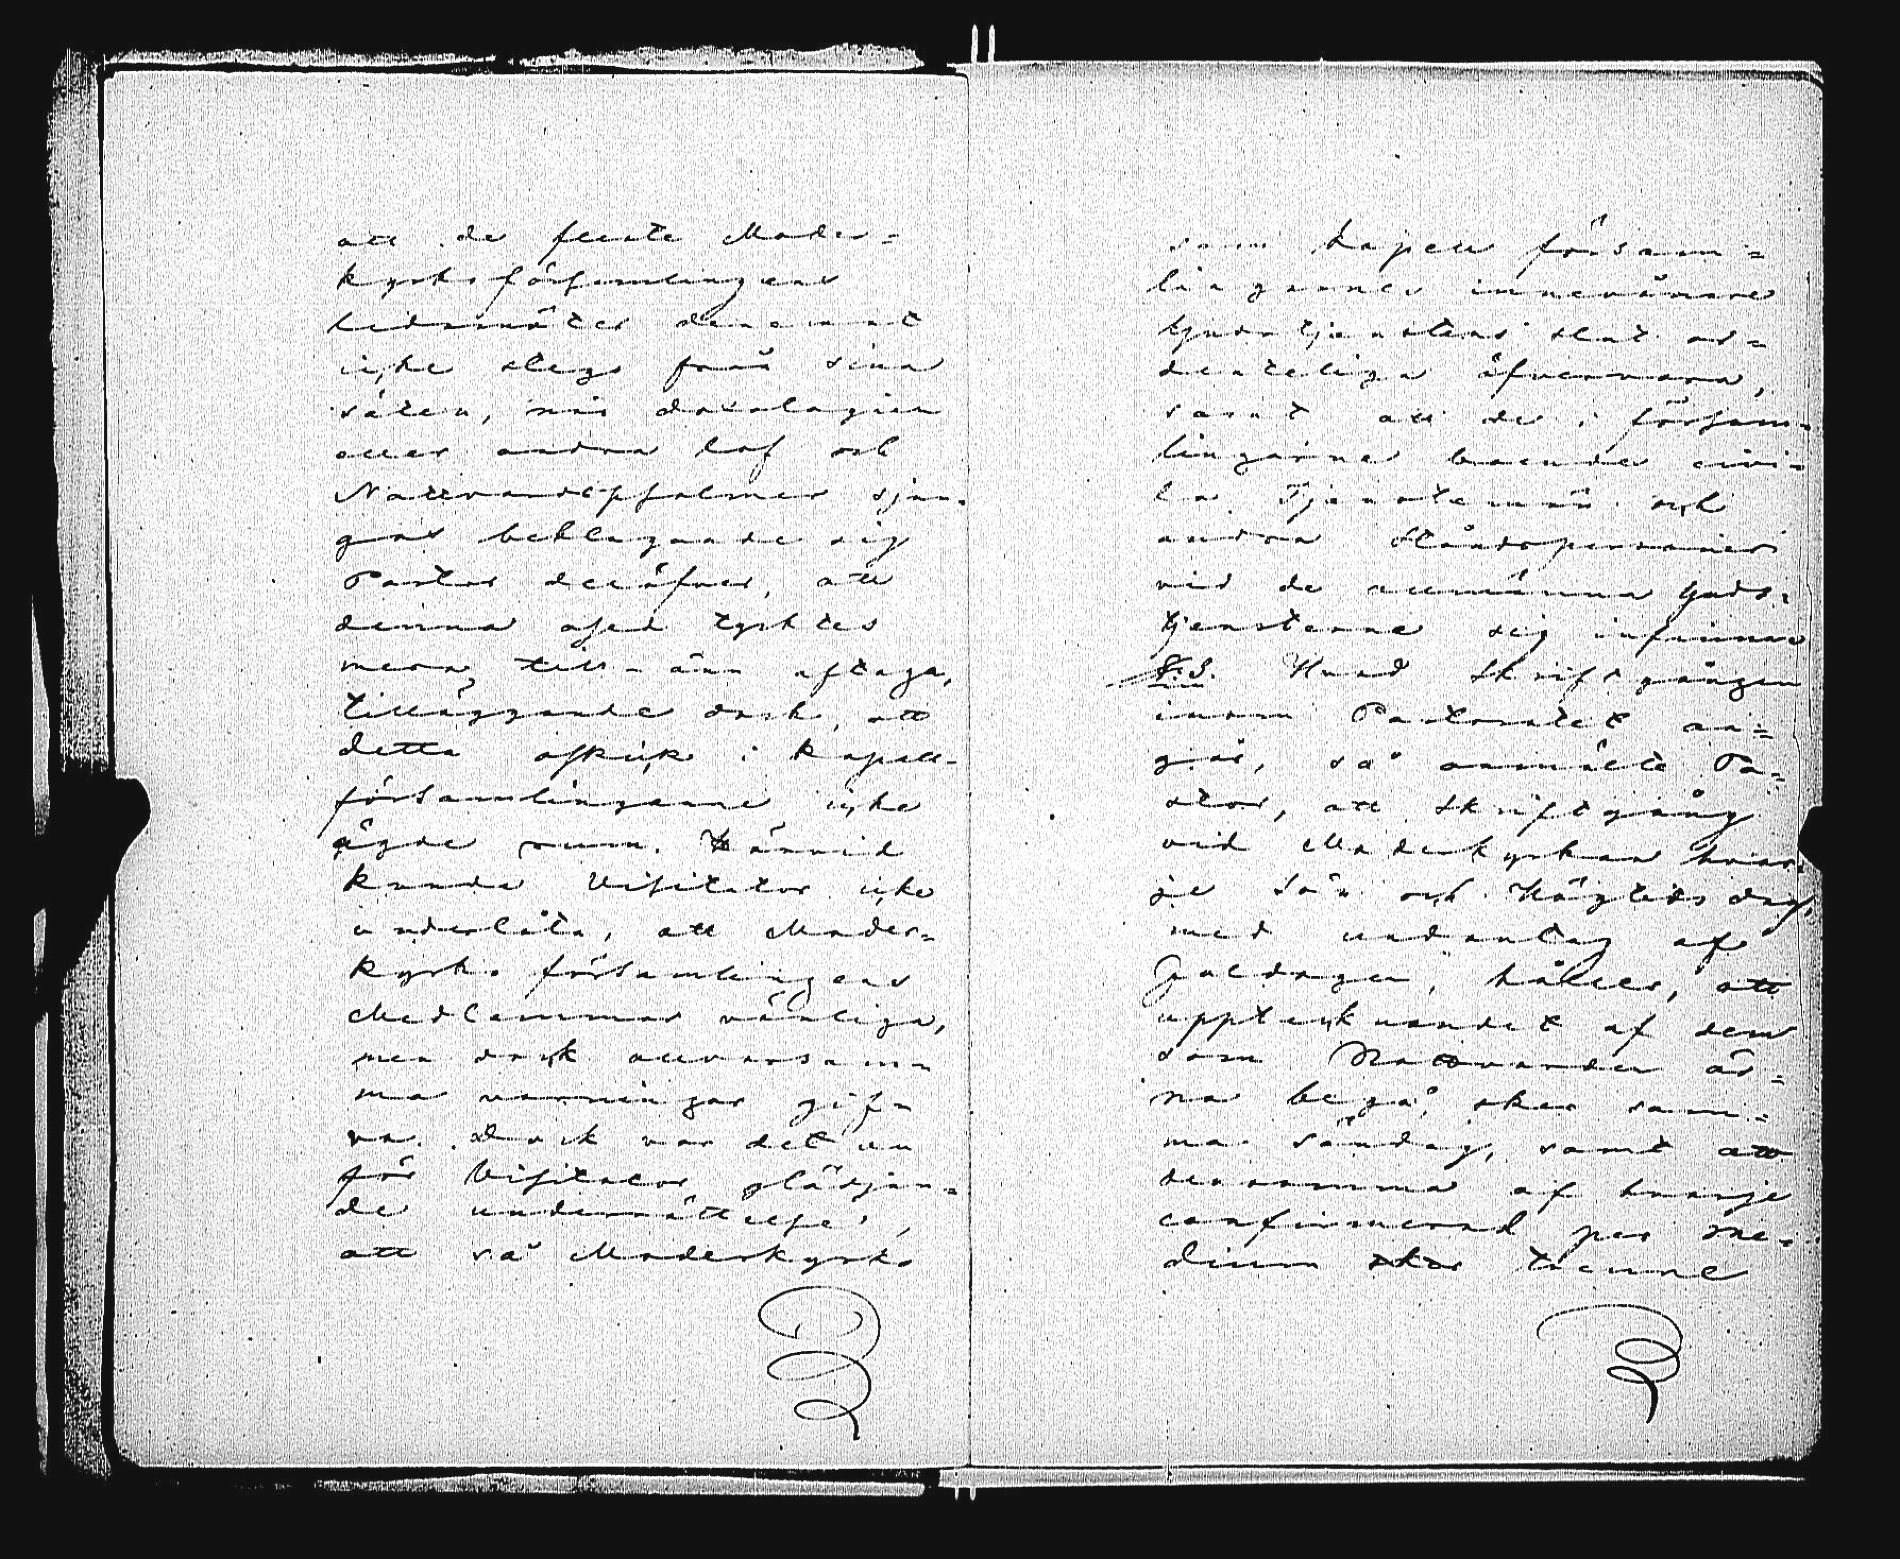 att de fleste Moder=
kyrko församlingens
ledamöter denemot
icke stego från sina
säten, när doxologien
eller andra lof och
Nattvardspsalmer sjun=
gos beklagande sig
Pastor deröfver, att
denna osed tycktes
mera till- än aftaga,
tilläggande dock, att
detta ofskick i Kapell=
församlingarne icke
ägde rum. Härvid
kunde Visitator icke
underlåta, att Moder=
kyrko församlingens
Medlemmar vänliga,
men dock allvarsam=
ma varningar gif=
va. Dock var det en
för Visitator glädjan=
de underrättelse,
att så Moderkyrko
som Kapell försam=
lingarnes innevånare
Gudstjenstens slut or=
denteligen öfvervara,
samt att de i försam=
lingarne boende civi=
la Tjenstemän och
andra Ståndspersoner
vid de allmänna Guds=
tjensterne sig infinna
§. 3. Hvad Skriftgången
inom Pastoratet an=
går, så anmälte Pa=
stor, att Skriftgång
vid Moderkyrkan hvar=
je Sön och Högtids dag,
med undantag af
Juldagen, hålles, att
upptecknandet af dem
som Nattvarden är=
na begå, sker sam=
ma söndag, samt att
densamma af hvarje
confirmerad per me=
dium trenne